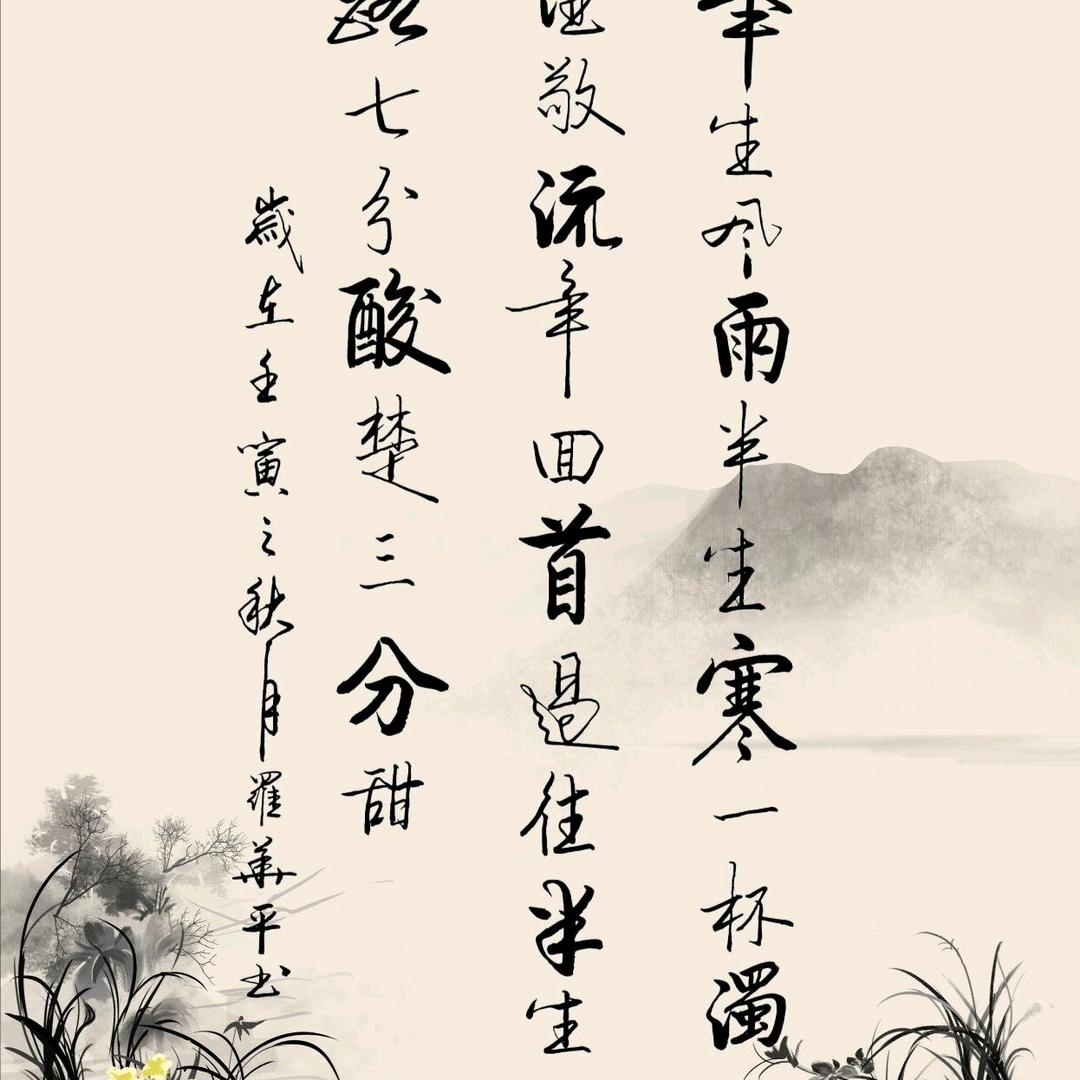 半生风雨半生寒一杯濁
酒敬流年回首過往半生
路七分酸楚三分甜
歲在壬寅之秋月羅華平书